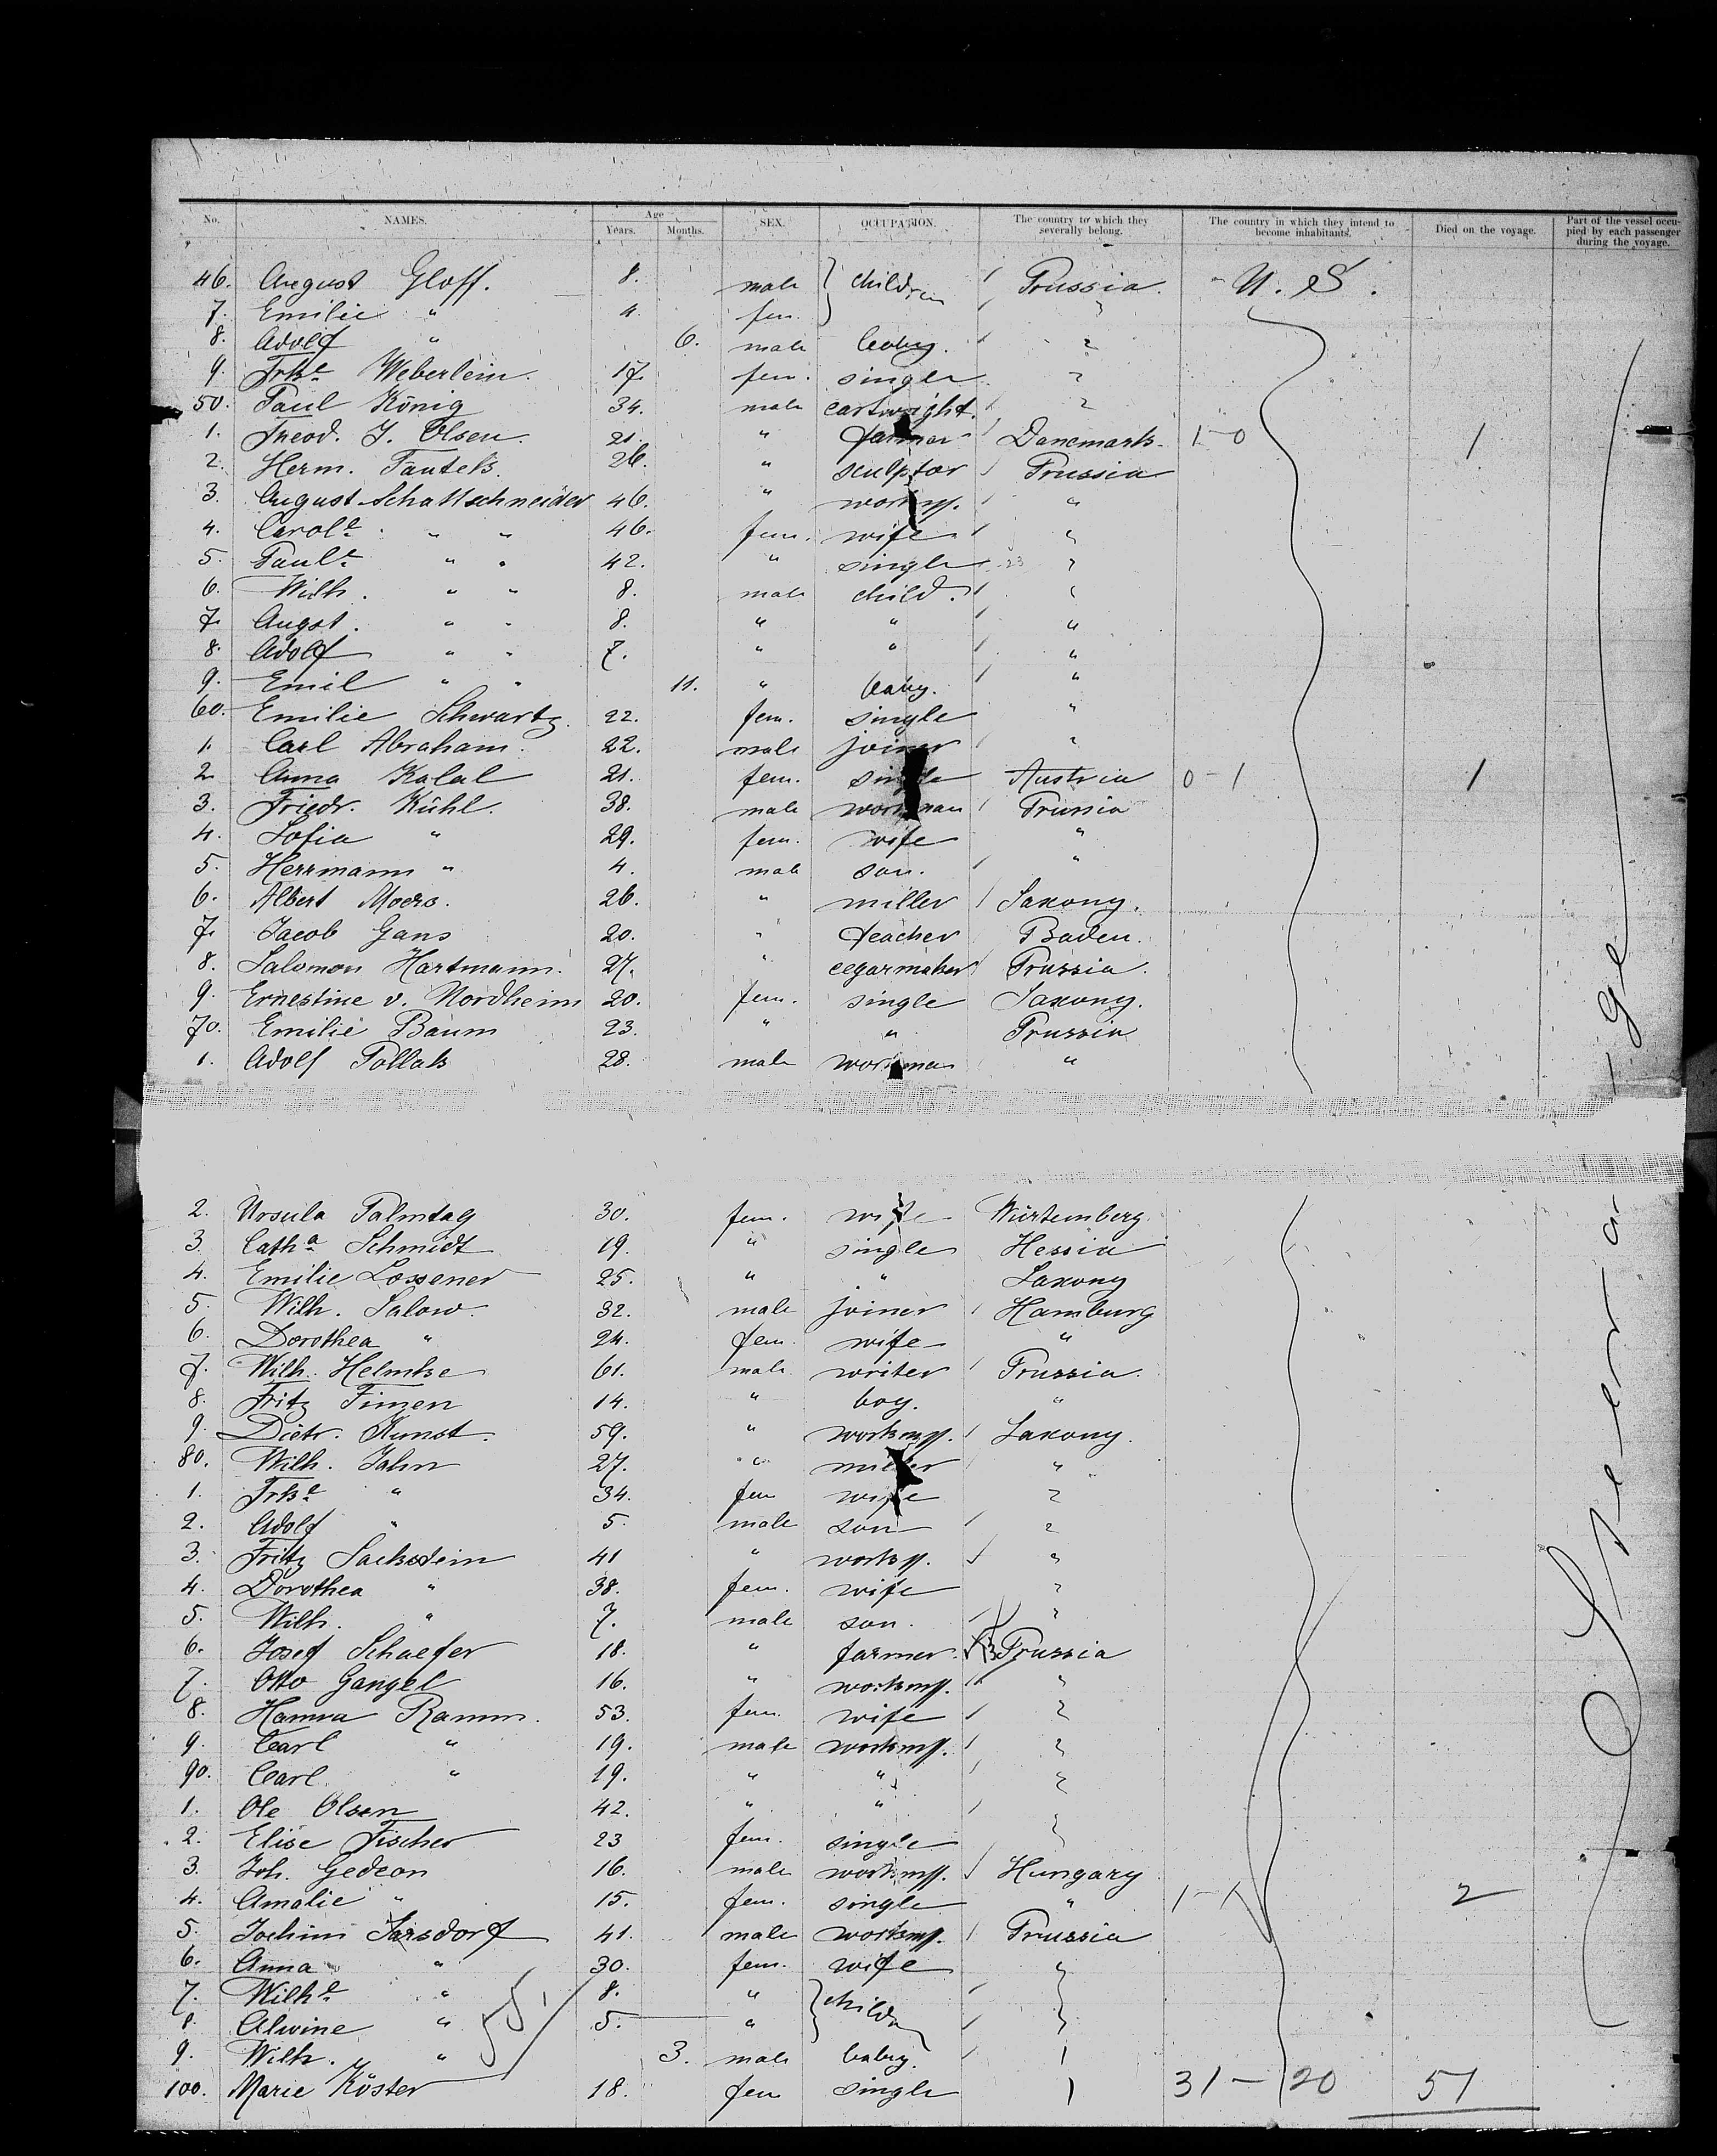 No. NAMES. Age Years. Months. SEX. OCCUPATION. The country to which they severally belong. The country in which they intend to become inhabitants. Died on the voyage. Part of the vessel occupied by each passenger during the voyage.
46. August Gloff. 8. male } children Prussia. U. S.
7. Emilie " 4. fem. "
8. Adolf " 6. male baby. "
9. Frke Weberlein. 17. fem. single "
50. Paul König 34. male cartwright. "
1. Theod. J. Olsen. 21. " farmer Danemark 1-0 1
2. Herm. Fautek 26. " sculptor Prussia
3. August Schattschneider 46. " "
4. Carole " " 46. fem. wife "
5. Paule " " 42. " single 23 "
6. Wilh. " " 8. male child. "
7. Augst. " " 8. " " "
8. Adolf " " 7. " " "
9. Emil " " 11. " baby. "
60. Emilie Schwartz. 22. fem. single "
1. Carl Abraham. 22. male joiner "
2. Anna Kalal 21. fem. single Austria 0-1 1
3. Friedr. Kühl. 38. male workman Prussia
4. Sofia " 29. fem. wife "
5. Herrmann " 4. male son. "
6. Albert Moers. 26. " miller Saxony.
7. Jacob Gans 20. " teacher Baden.
8. Salomon Hartmann. 27. " cegarmaker Prussia.
9. Ernestine v. Nordheim 20. fem. single Saxony.
70. Emilie Baum 23. " " Prussia
1. Adolf Pollak 28. male workman "
2. Ursula Palmtag 30. fem. wife Würtemberg.
3. Catha Schmidt 19. " single Hessia
4. Emilie Lossener 25. " " Saxony
5. Wilh. Salow 32. male joiner Hamburg
6. Dorothea " 24. fem. wife "
7. Wilh. Helmke 61. male writer Prussia.
8. Fritz Timen 14. " boy. "
9. Dietr. Kunst. 59. " Saxony.
80. Wilh. Jahn 27. " miller "
1. Frke " 34. fem wife "
2. Adolf " 5. male son "
3. Fritz Sackstein 41 " "
4. Dorothea " 38. fem. wife "
5. Wilh. " 7. male son. "
6. Josef Schaefer 18. " farmer. Prussia
7. Otto Gangel 16. " "
8. Hanna Ramm. 53. fem. wife "
9. Carl " 19. male "
90. Carl. " 19. " " "
1. Ole Olsen 42. " " "
2. Elise Fischer 23 fem. single "
3. Joh. Gedeon 16. male Hungary
4. Amalie " 15. fem. single " 1-1 2
5. Jochim 41. male Prussia
6. Anna " 30. fem. wife "
7. Wilhe " 8. " } "
8. Alwine " 5. " "
9. Wilh. " 3. male baby.
100. Marie Köster 18. fem single 31-20 51
Steerage